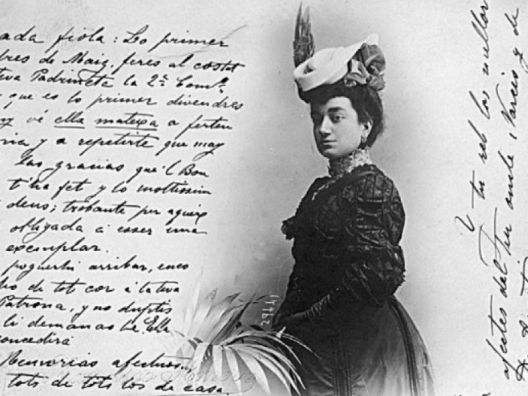 ada fiola: Lo primer
dres de Maig, feres al costat
teva Padrineta la 2ª
que es lo primer divendres
vé ella mateixa a ferten
ria y a repetirte que may
las gracias que'l Bon
t'ha fet y lo moltissim
deus; trobante per aqueix
obligada á esser una
exemplar.
poguerhi arribar, enco
ho de tot cor á la teva
Patrona, y no duptis
li demanas Ella
concedirá
Memorias afectuos
tots de tots los de casa.
Y tu reb los millor
afectes del teu oncle Narcis y de